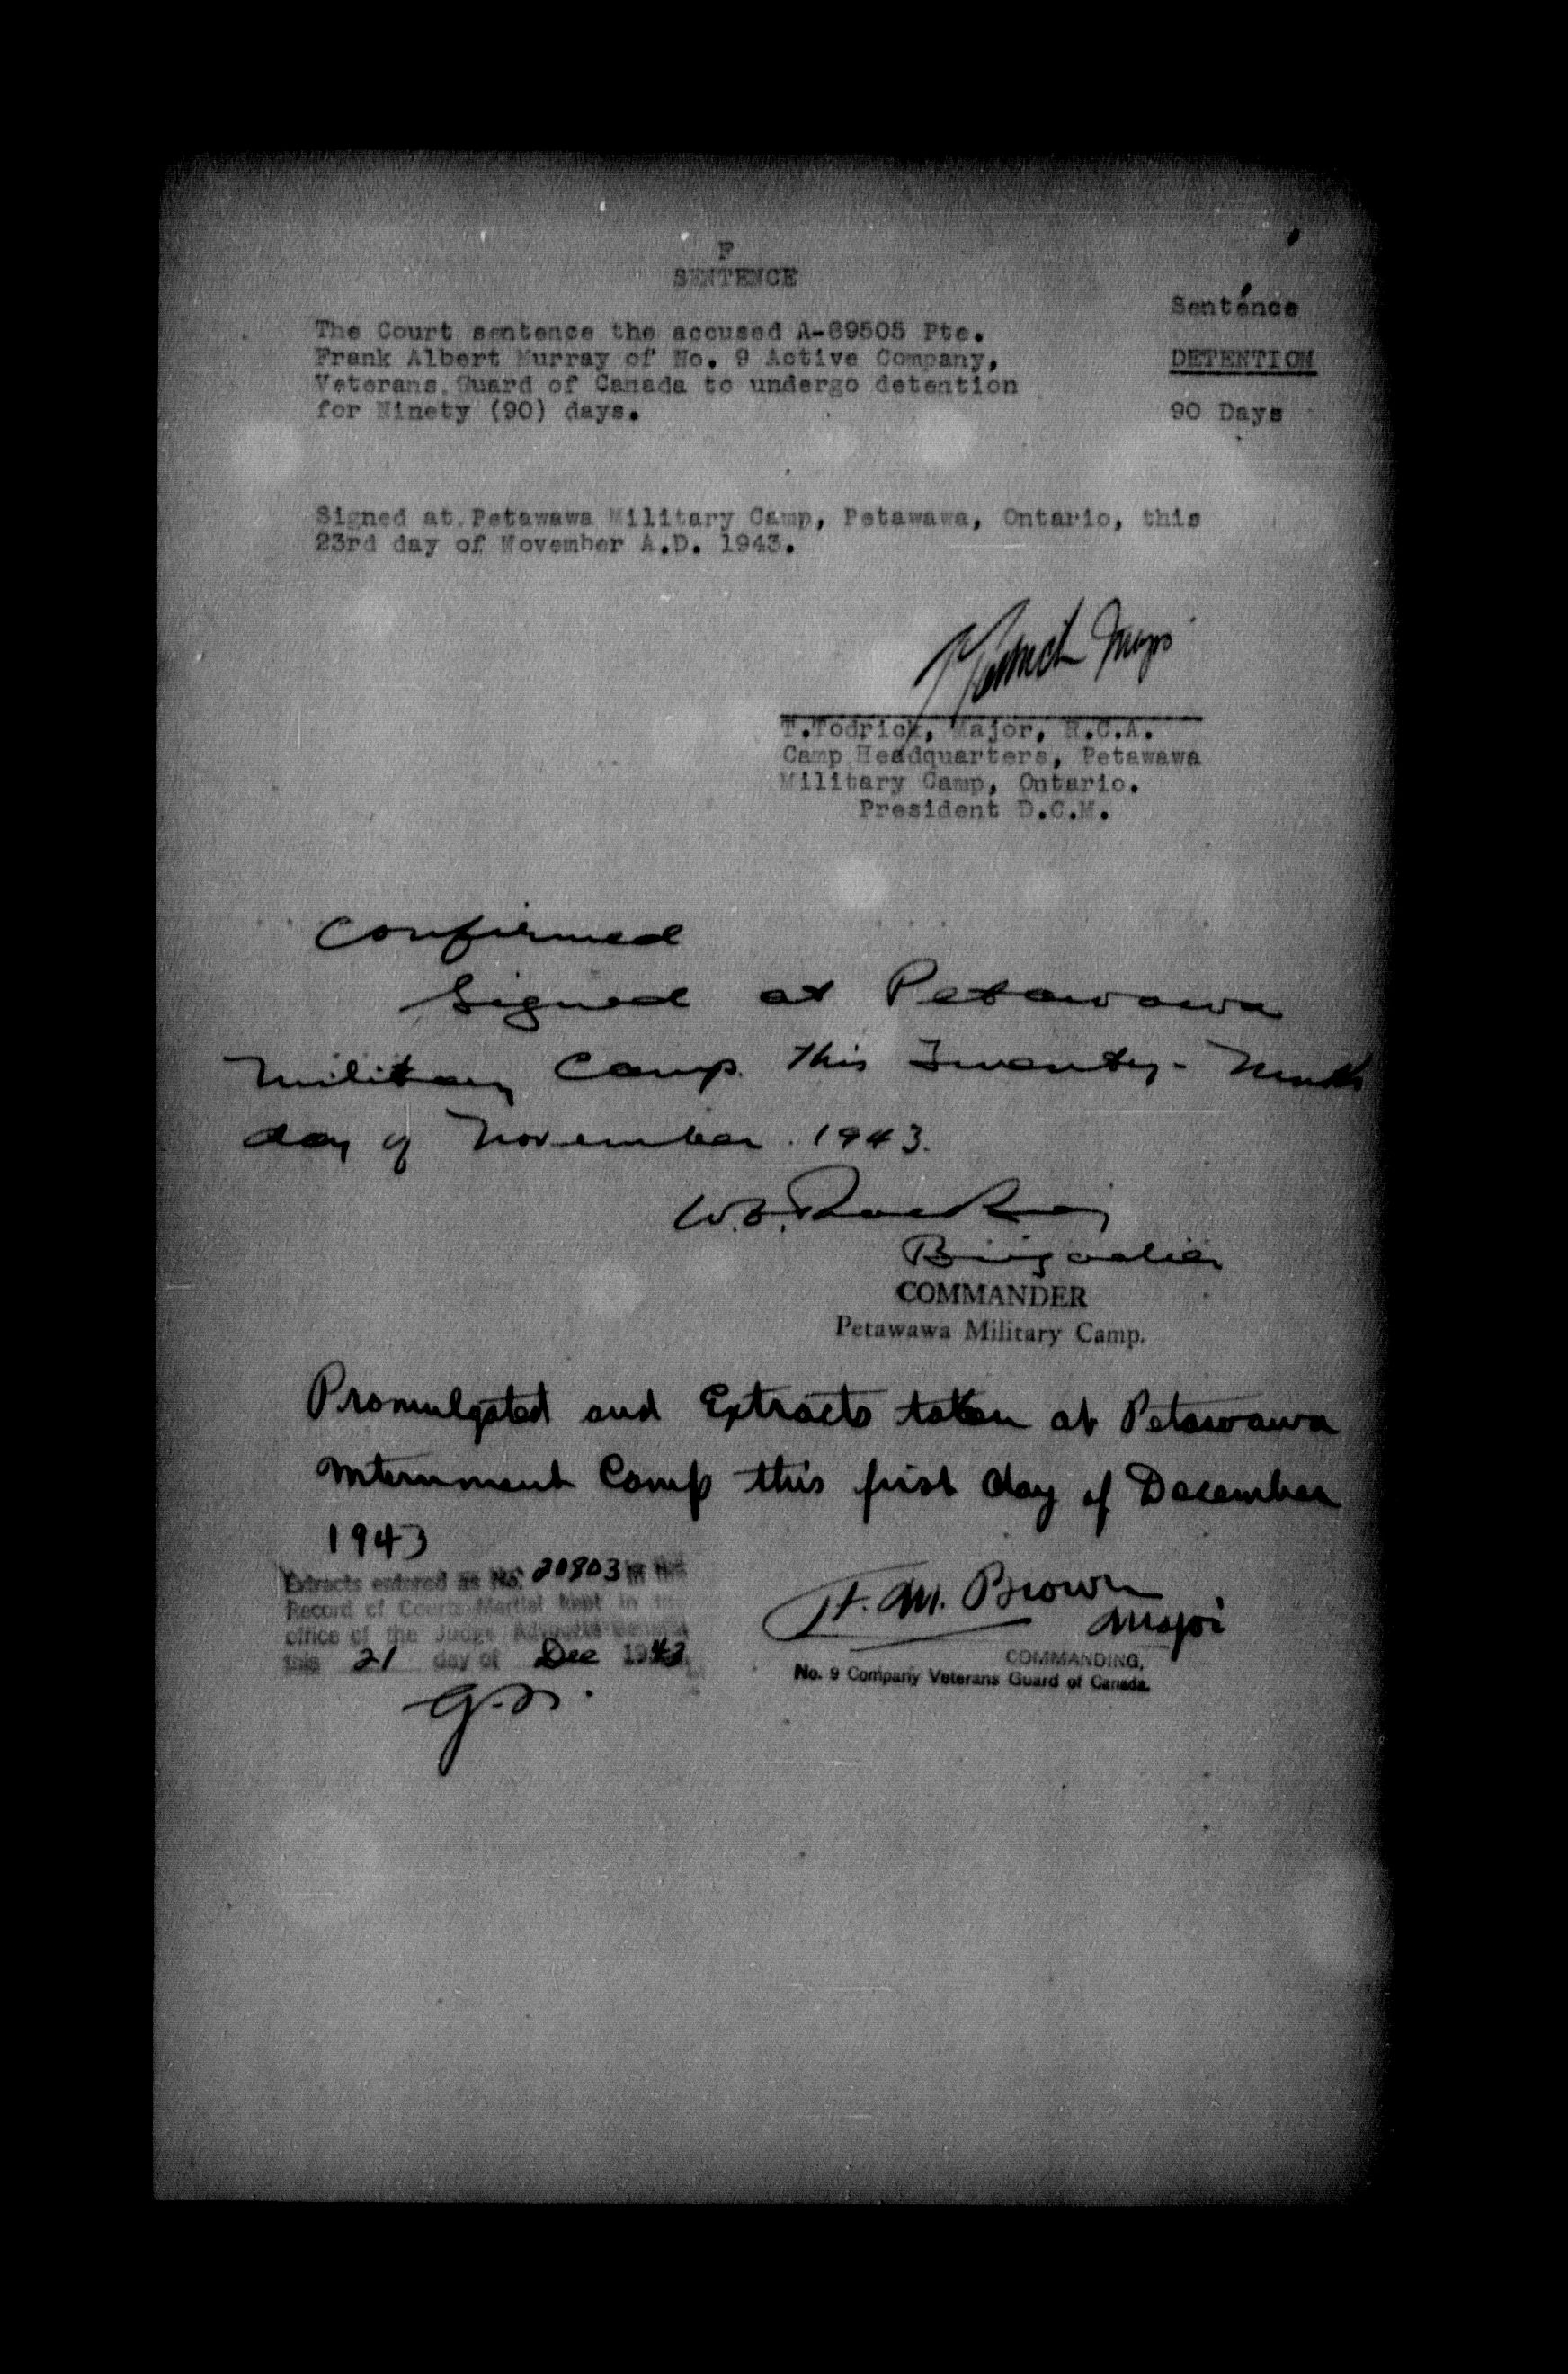 F
SENTENCE
The Court sentence the accused A-89505 Pte.
Frank Albert Murray of No. 9 Active Company,
Veterans Guard of Canada to undergo detention
for Ninety (90) days.
Sentence
DETENTION
90 Days
Signed at Petawawa Military Camp, Petawawa, Ontario, this
23rd day of November A.D. 1943.
Major
T.Todrick, Major, R.C.A.
Camp Headquarters, Petawawa
Military Camp, Ontario.
President D.C.M.
Confirmed
Signed at Petawawa
Military Camp this Twenty-Ninth
day of November 1943.
Brigadier
COMMANDER
Petawawa Military Camp.
Promulgated and Extracts taken at Petawawa
Internment Camp this first day of December
1943
Extracts entered as No. 20803 in the
Record of Courts-Martial kept in the
office of the Judge Advocate-General
this 21 day of Dec 1943.
H. M. Brown
Major
COMMANDING,
No. 9 Company Veterans Guard of Canada.